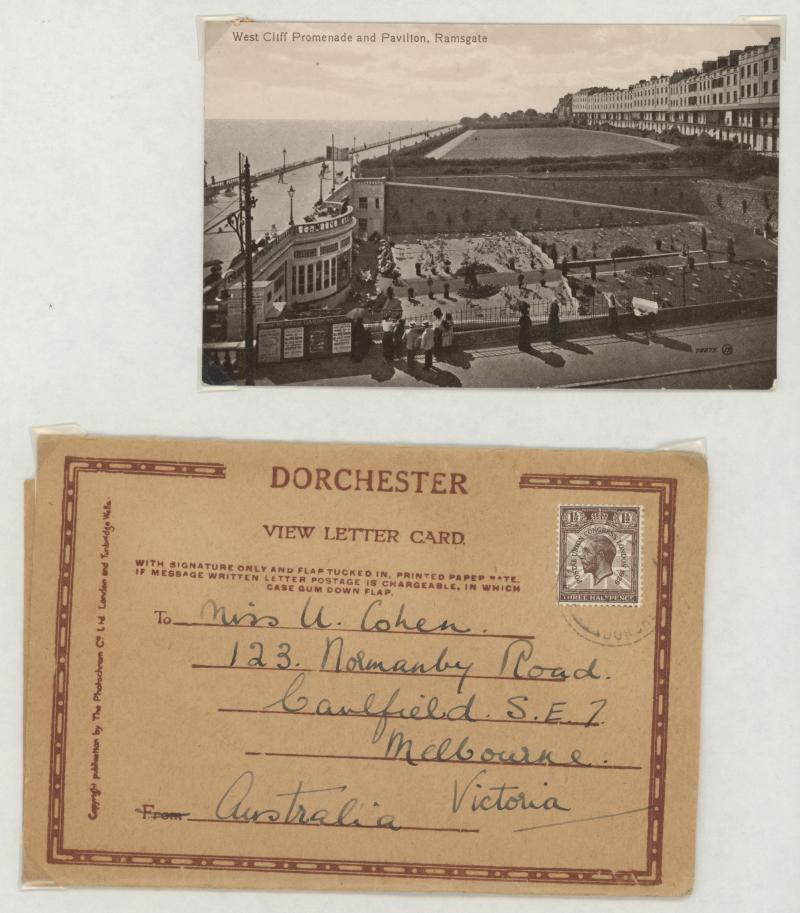 West Cliff Promenade and Pavilion, Ramsgate
DORCHESTER
VIEW LETTER CARD.
WITH SIGNATURE ONLY AND FLAP TUCKED IN, PRINTED PAPER RATE.
IF MESSAGE WRITTEN LETTER POSTAGE IS CHARGEABLE, IN WHICH
CASE GUM DOWN FLAP.
1½ 1½
POSTAL UNION CONGRESS LONDON 1929
THREE HALFPENCE
To Miss U. Cohen.
123. Normanby Road.
Caulfield. S.E.7.
Melbourne.
Victoria
From Australia
Copyright publication by The Photochrom Co. Ltd. London and Tunbridge Wells.